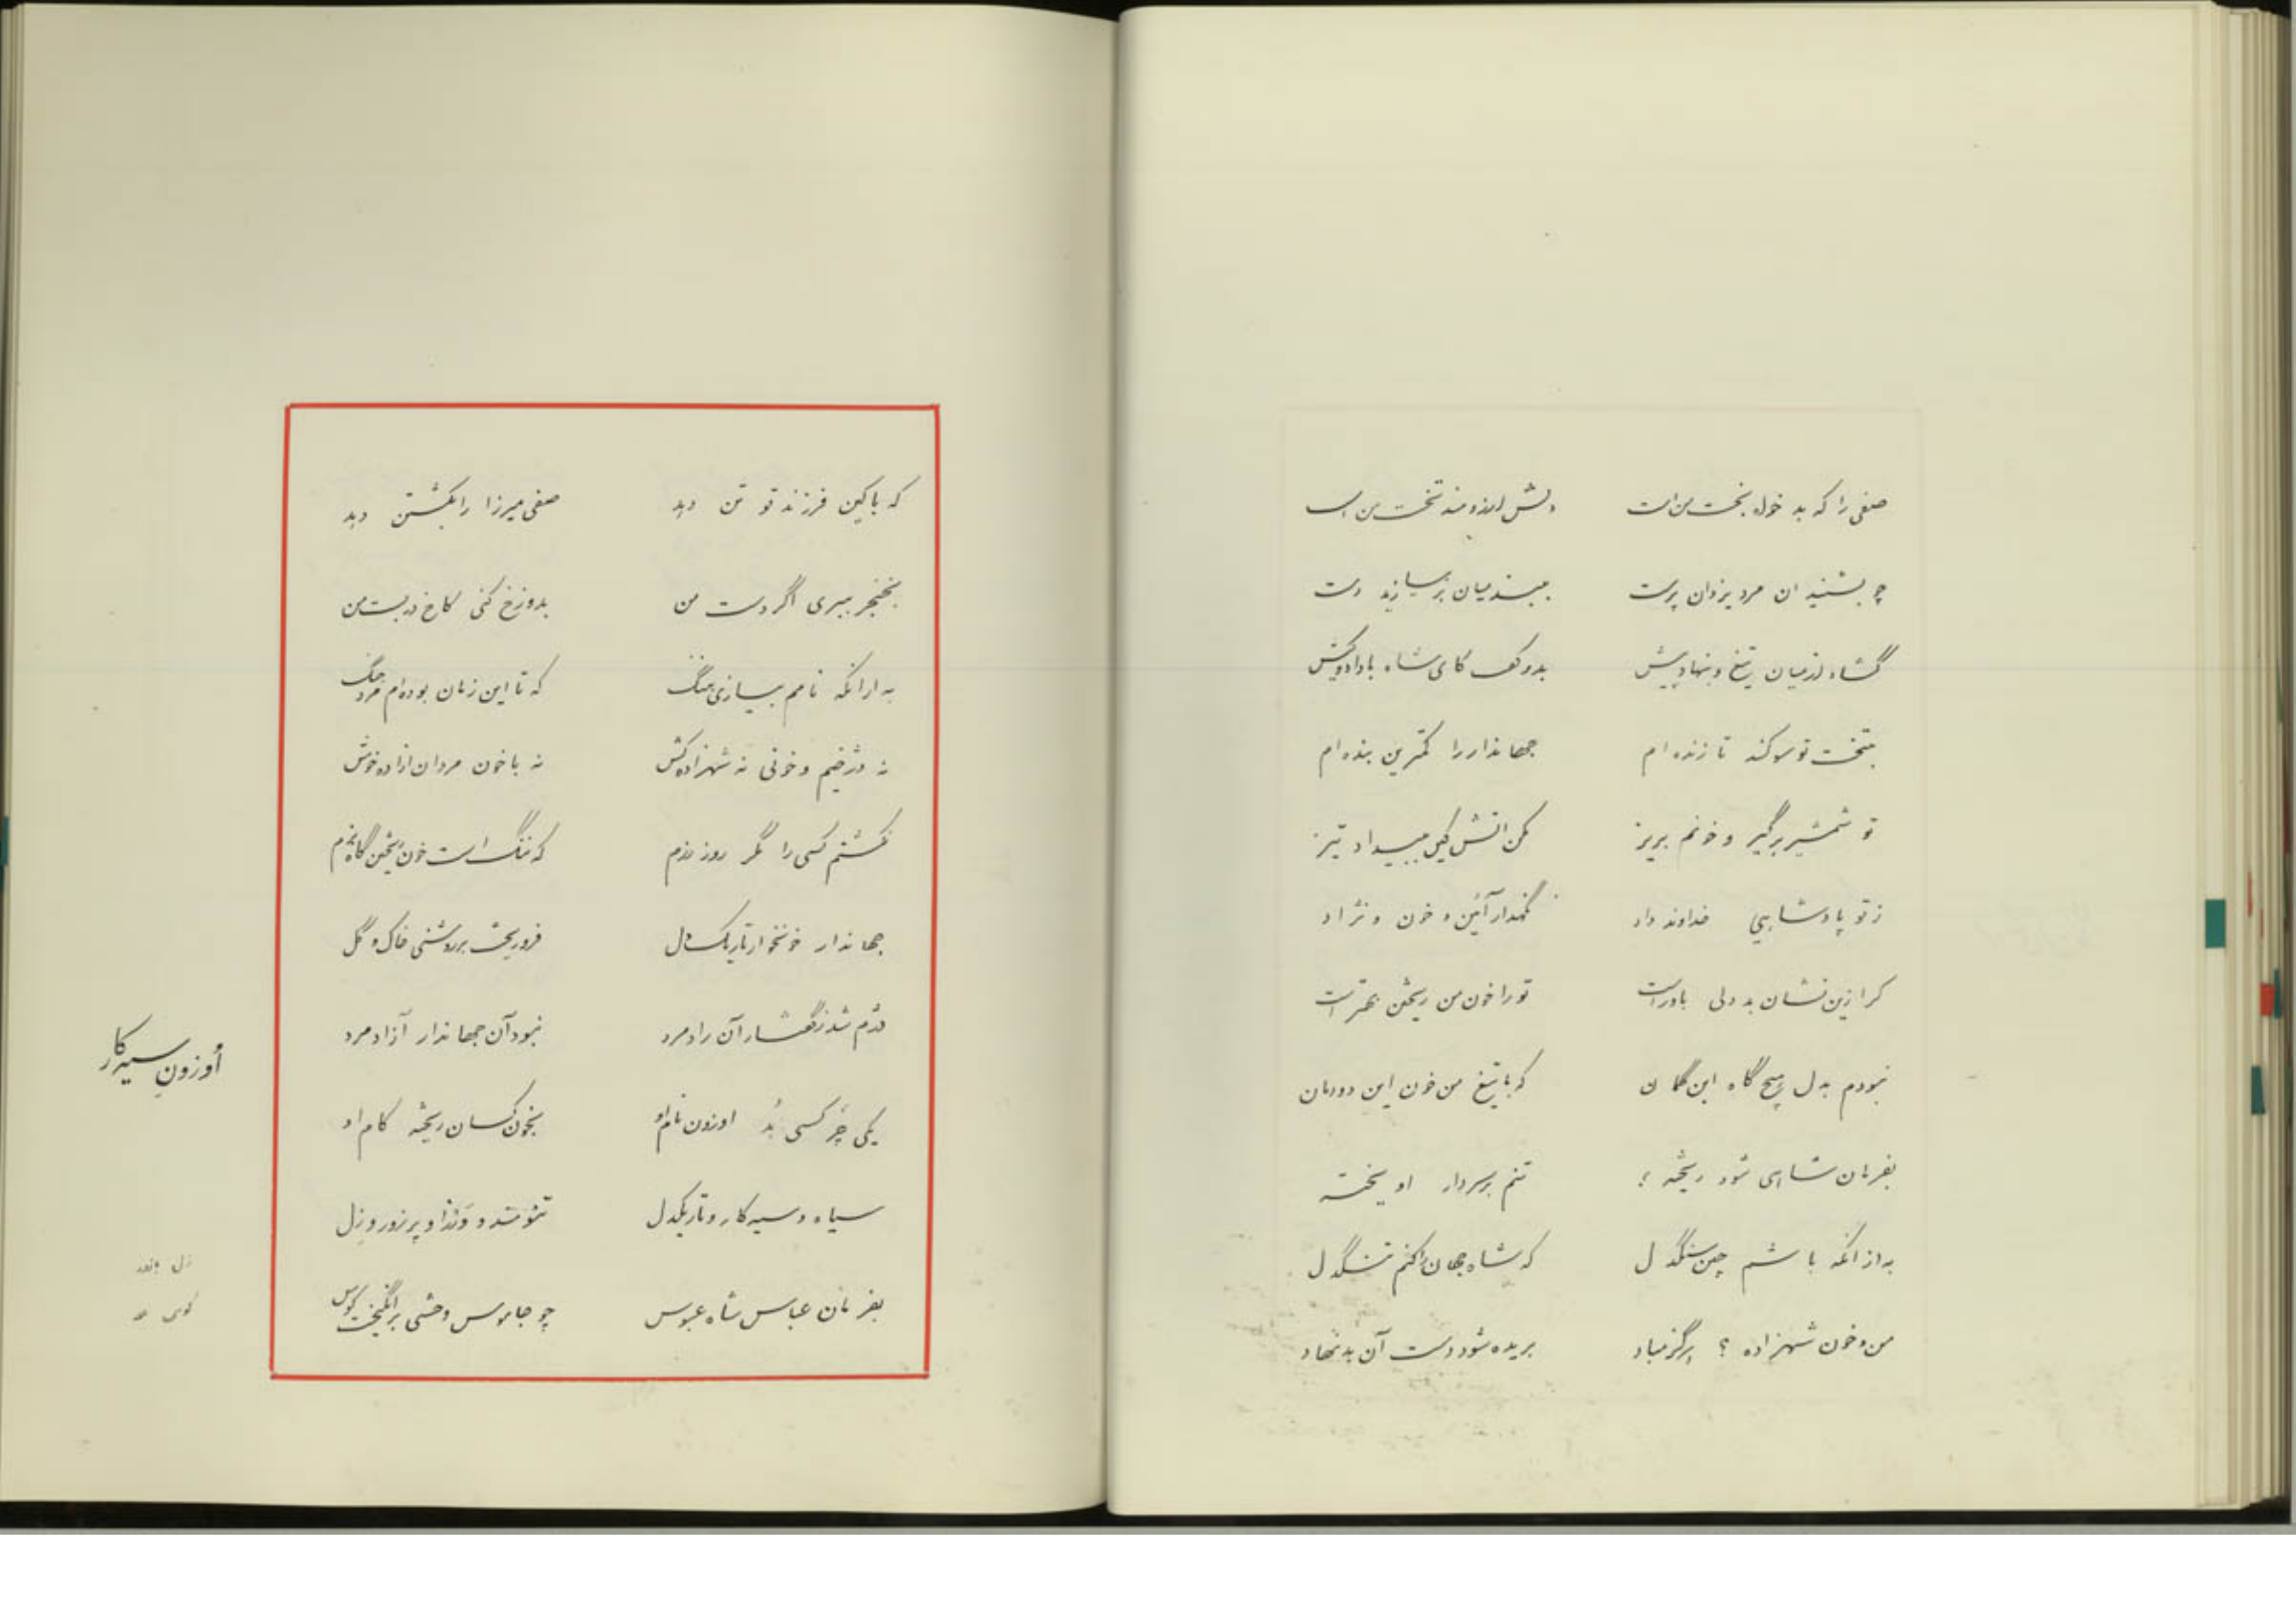 صفی را که بدخواه بخت من است دلش آرزومند تخت من است
چو بشنید ان مرد یزدان پرست ببند میان بر بیازید دست
گشاد از میان تیغ و بنهاد پیش بدو گفت کای شاه با داد و کیش
بتخت تو سوگند تا زنده ام جهاندار را کمترین بنده ام
تو شمشیر برگیر و خونم بریز مکن اتش کین ببیداد تیز
ز تو پادشاهی خداوند داد نگهدار آئین و خون و نژاد
کرا زین نشان بد دلی باور است تو را خون من ریختن بهتر است
نبودم بدل هیچ گاه این گمان که با تیغ من خون این دودمان
بفرمان شاهی شود ریخته ؛ تنم بر سر دار اویخته
به از انکه باشم چنین سنگدل که شاه جهان را کنم تنگدل
من و خون شهزاده ؟ هرگز مباد بریده شود دست آن بد نهاد
که با کین فرزند تو تن دهد صفی میرزا را بکشتن دهد
بخنجر ببری اگر دست من بدوزخ کنی کاخ دربست من
به ازانکه نامم بسازی بننگ که تا این زمان بوده ام مرد جنگ
نه دژخیم و خونی نه شهزاده کش نه با خون مردان ازاده خوش
نکشتم کسی را مگر روز رزم که ننگ است خون ریختن گاه بزم
جهاندار خونخوار تاریک دل فرو ریخت بر روشنی خاک و گل
دژم شد ز گفتار آن رادمرد نبود آن جهاندار آزاد مرد
یکی چرکسی بُد اوزون نام او بخون کسان ریخته کام او
سیاه و سیه کار و تاریکدل تنومند و پر زور و زل
بفرمان عباس شاه عبوس چو جاموس وحشی برانگیخت کوس
اُوزونِ سیه کار